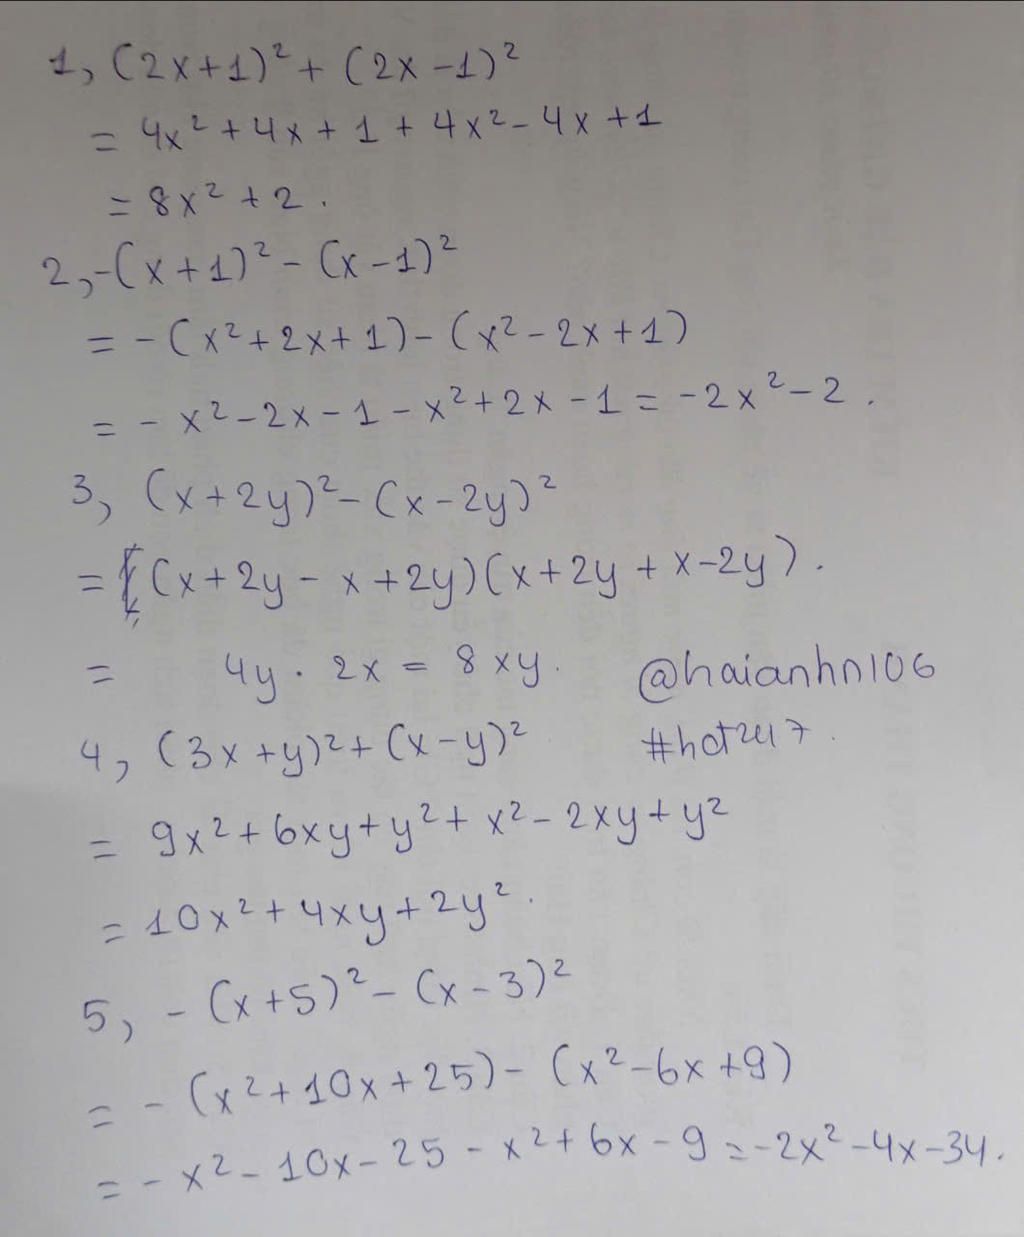 1, (2x+1)² + (2x-1)²
= 4x² + 4x + 1 + 4x² - 4x + 1
= 8x² + 2.
2, -(x+1)² - (x-1)²
= -(x² + 2x + 1) - (x² - 2x + 1)
= - x² - 2x - 1 - x² + 2x - 1 = -2x² - 2.
3, (x+2y)² - (x-2y)²
= (x + 2y - x + 2y)(x + 2y + x - 2y).
= 4y . 2x = 8xy. @haianhn106
4, (3x+y)² + (x-y)²
= 9x² + 6xy + y² + x² - 2xy + y²
= 10x² + 4xy + 2y².
5, - (x+5)² - (x-3)²
= - (x² + 10x + 25) - (x² - 6x + 9)
= - x² - 10x - 25 - x² + 6x - 9 = -2x² - 4x - 34.